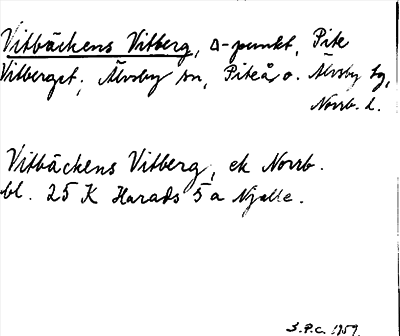 Vitbäckens Vitberg, △-punkt, Pite
Vitberget, Älvsby sn, Piteå o. Älvsby tg,
Norrb. l.
Vitbäckens Vitberg, ek Norrb.
bl. 25 K Harads 5 a Njalle.
S.P.C. 1959.